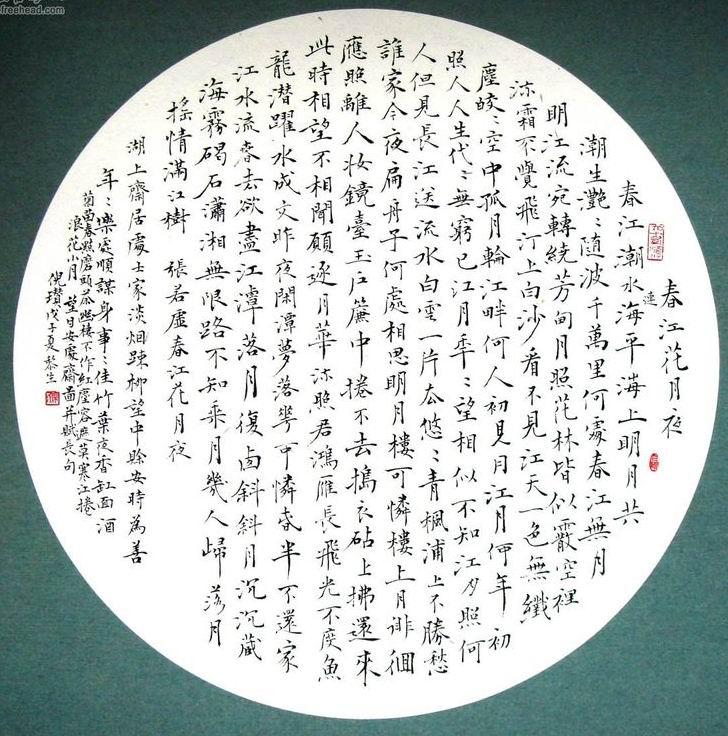 freehead.com
春江花月夜
春江潮水連海平海上明月共
潮生灔〻随波千萬里何處春江無月
明江流宛轉繞芳甸月照花林皆似霰空裡
流霜不覺飛汀上白沙看不見江天一色無纖
塵皎〻空中孤月輪江畔何人初見月江月何年初
照人人生代〻無窮已江月年〻望相似不知江月照何
人但見長江送流水白雲一片去悠〻青楓浦上不勝愁
誰家今夜扁舟子何處相思明月樓可憐樓上月徘徊
應照離人妝鏡臺玉戶簾中捲不去搗衣砧上拂還來
此時相望不相聞願逐月華流照君鴻雁長飛光不度魚
龍潜躍水成文昨夜閑潭夢落花可憐春半不還家
江水流春去欲盡江潭落月復西斜斜月沉沉藏
海霧碣石瀟湘無限路不知乘月幾人歸落月
摇情滿江樹 張若虛春江花月夜
湖上齋居處士家淡烟踈柳望中賒安時為善
年〻樂處順謀身事〻佳竹葉夜香缸面酒
菊苗春點磨頭茶幽棲不作紅塵客遮莫寒江捲
浪花小月 望日安處齋圖并賦長句
倪瓚戊子夏黎生